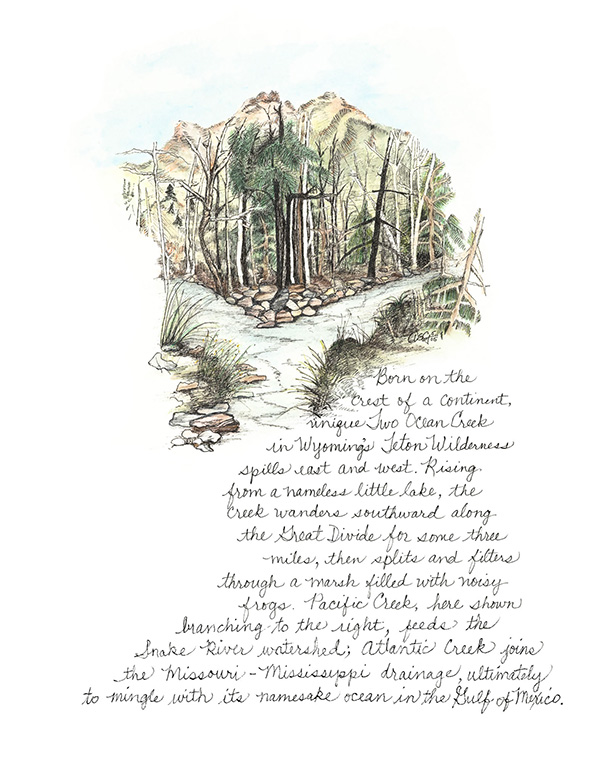 Born on the
crest of a continent,
unique Two Ocean Creek
in Wyoming's Teton Wilderness
spills east and west. Rising
from a nameless little lake, the
creek wanders southward along
the Great Divide for some three
miles, then splits and filters
through a marsh filled with noisy
frogs. Pacific Creek, here shown
branching to the right, feeds the
Snake River watershed; Atlantic Creek joins
the Missouri-Mississippi drainage, ultimately
to mingle with its namesake ocean in the Gulf of Mexico.